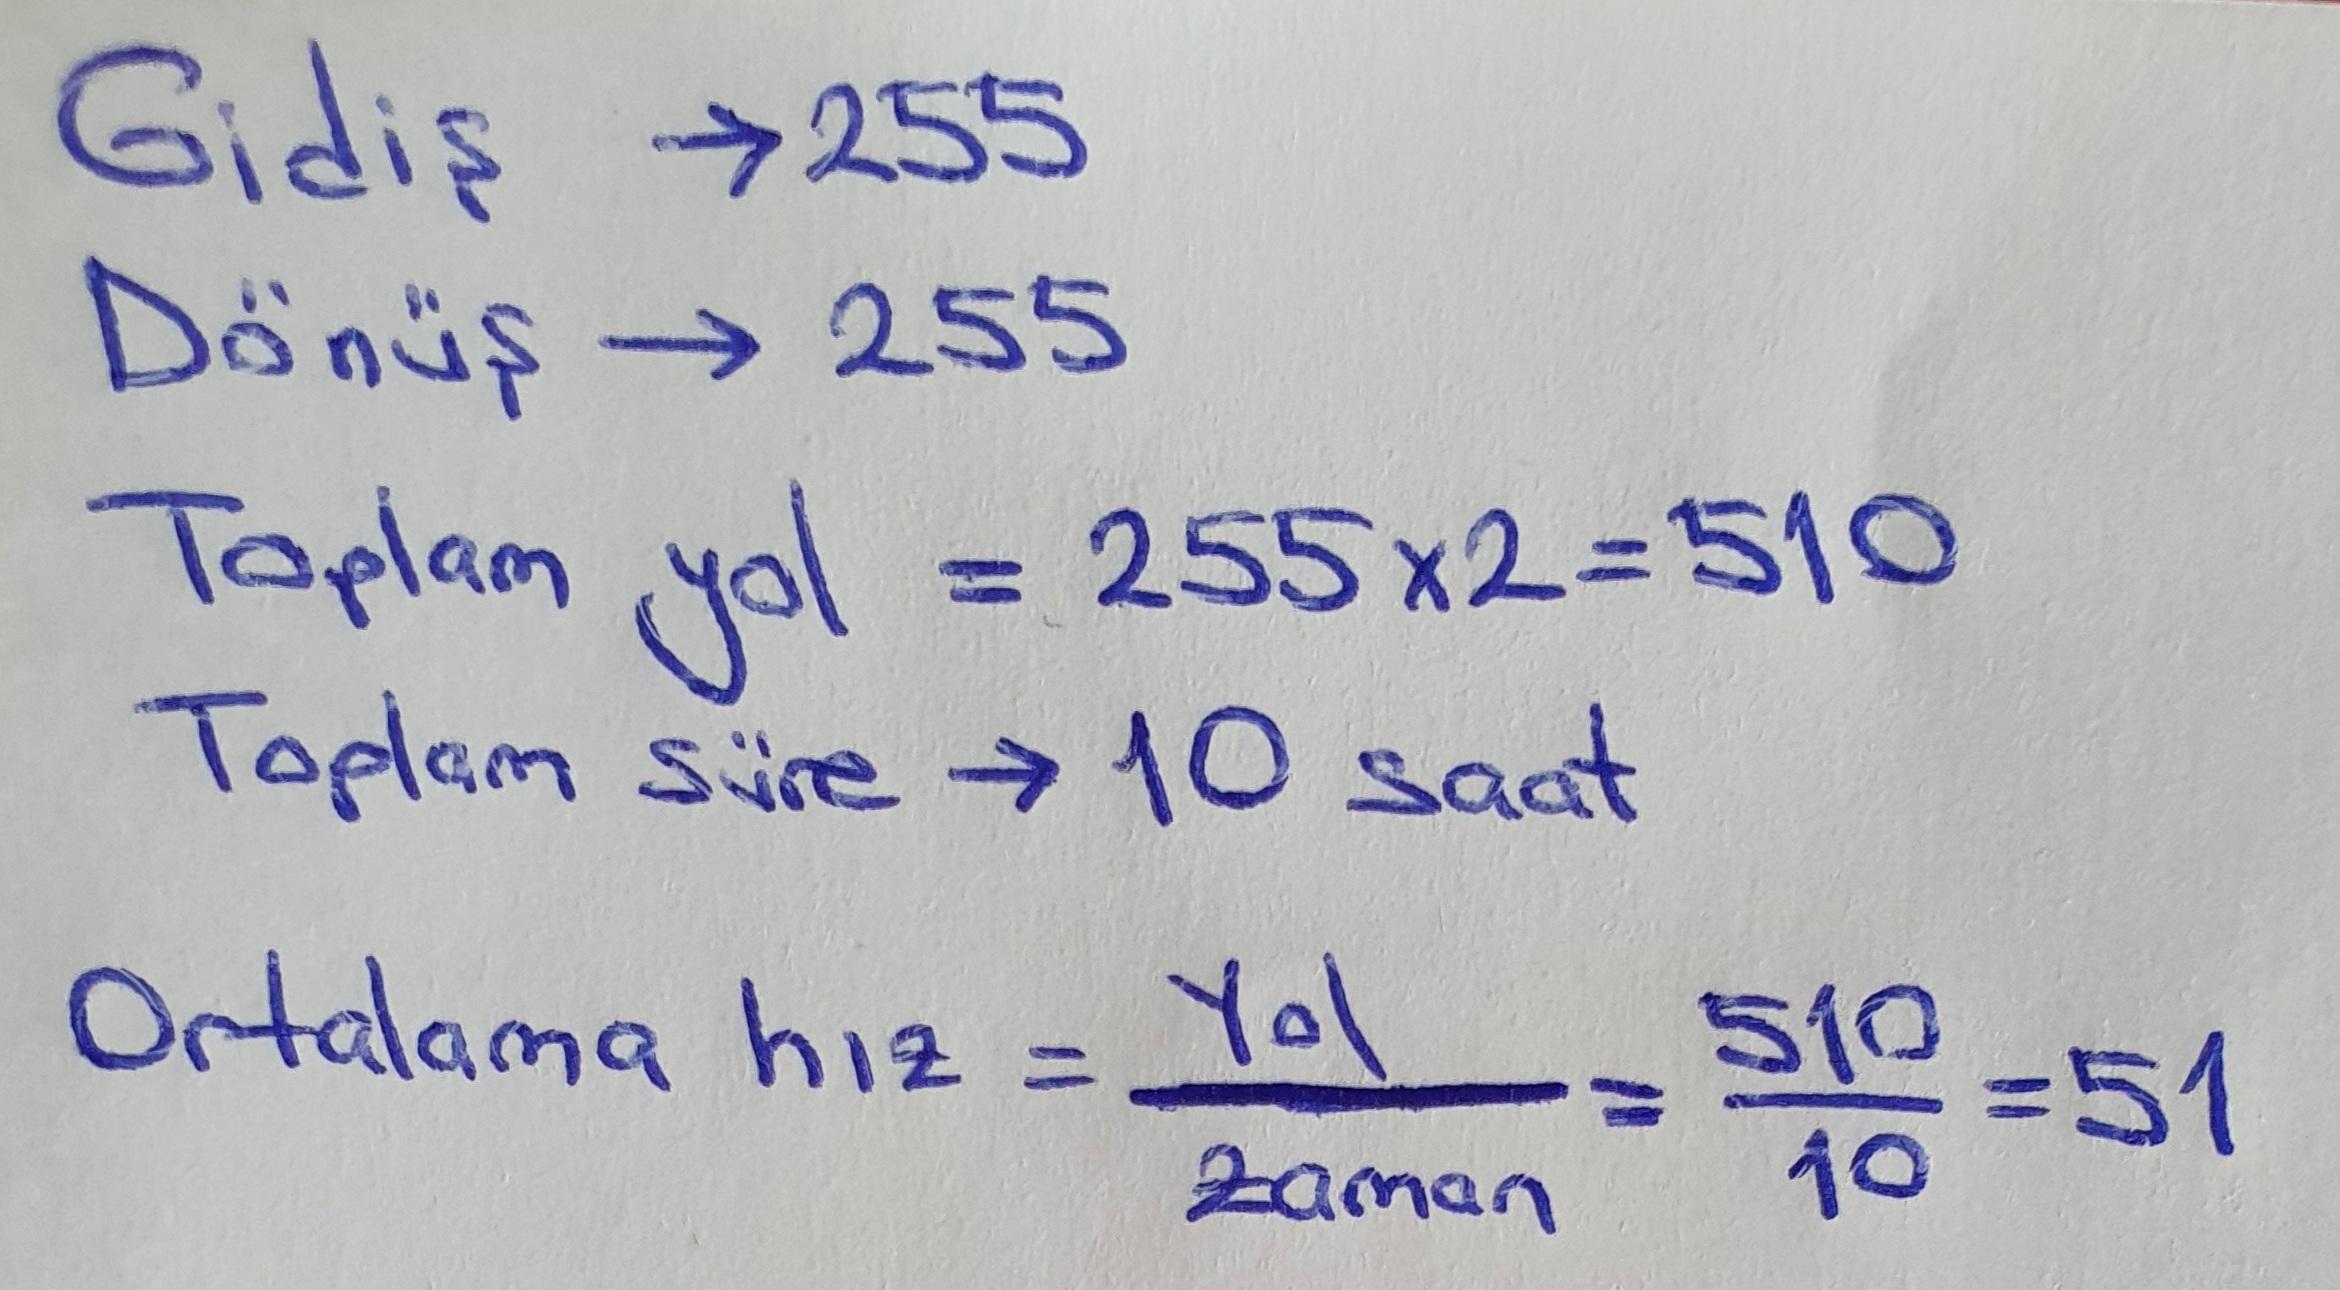 Gidiş → 255
Dönüş → 255
Toplam yol = 255x2=510
Toplam süre → 10 saat
Ortalama hız = Yol/zaman = 510/10 = 51